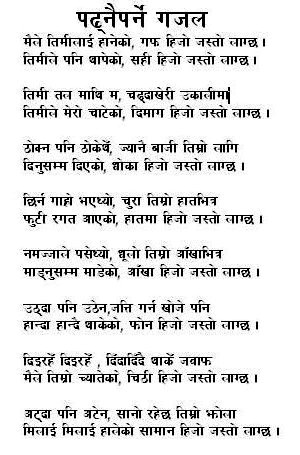 पढ्नैपर्ने गजल
मैले तिमीलाई हानेको, गफ हिजो जस्तो लाग्छ ।
तिमीले पनि थापेको, सही हिजो जस्तो लाग्छ ।
तिमी तल माथि म, चढ्दाखेरी उकालीमा
तिमीले मेरो चाटेको, दिमाग हिजो जस्तो लाग्छ ।
ठोक्न पनि ठोकेथेँ, ज्यानै बाजी तिम्रो लागि
दिनुसम्म दिएको, धोका हिजो जस्तो लाग्छ ।
छिर्न गाह्रो भएथ्यो, चुरा तिम्रो हातभित्र
फुटी रगत आएको, हातमा हिजो जस्तो लाग्छ ।
नमज्जाले पसेथ्यो, धूलो तिम्रो आँखाभित्र
माड्नुसम्म माडेको, आँखा हिजो जस्तो लाग्छ ।
उठ्दा पनि उठेन,जत्ति गर्न खोजे पनि
हान्दा हान्दै थाकेको, फोन हिजो जस्तो लाग्छ ।
दिइरहेँ दिइरहेँ , दिँदादिँदै थाकेँ जवाफ
मैले तिम्रो च्यातेको, चिठी हिजो जस्तो लाग्छ ।
अट्दा पनि अटेन, सानो रहेछ तिम्रो झोला
मिलाई मिलाई हालेको सामान हिजो जस्तो लाग्छ ।